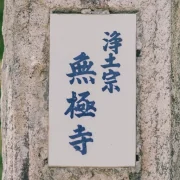 浄土宗
無極寺